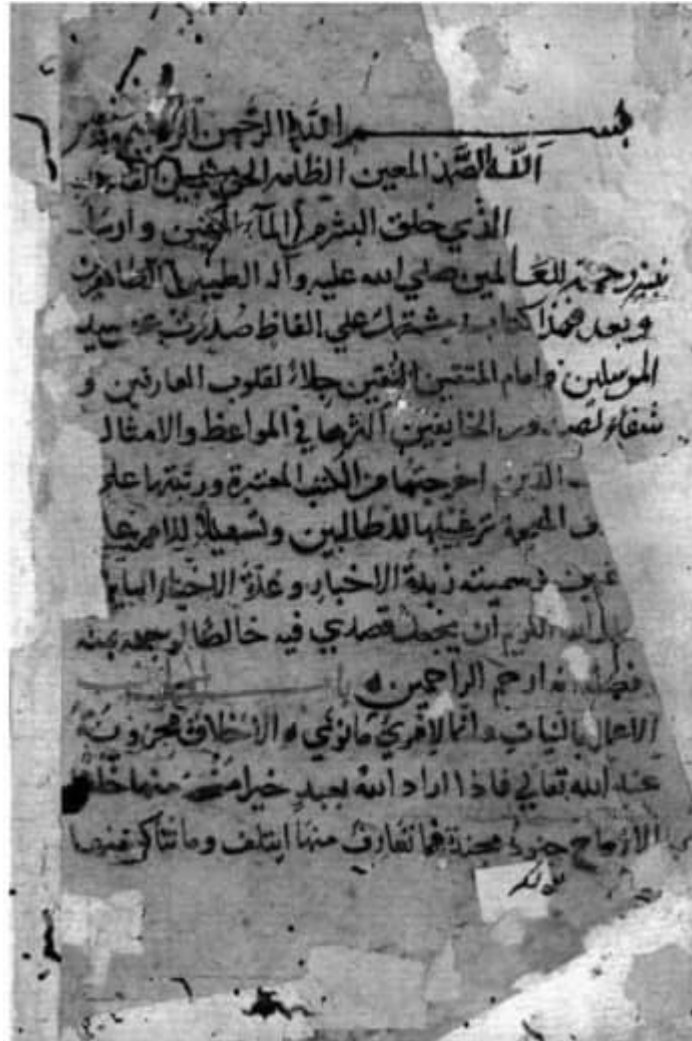 بسم الله الرحمن الرحيم وبه
الله الصمد المعين الظاهر الحق المبين
الذي خلق البشر من المآء المهين وارسل
نبيه رحمة للعالمين صلي الله عليه وآله الطيبين الطاهرين
وبعد فهذا كتاب يشتمل علي الفاظ صدرت عن سيد
المرسلين وامام المتقين جلاء لقلوب العارفين و
شفاء لصدور الخايفين اكثرها في المواعظ والامثال
الذين اخرجتها من الكتب المعتبرة ورتبتها علي
ترغيبا للطالبين وتسهيلا
وسميته زبدة الاخبار وعدة الاخيار
الله الكريم ان يجعل قصدي فيه خالصا لوجهه بمنه
ارحم الراحمين
الاعمال بالنيات وانما لامرئ مانوي الاخلاق مخزونة
عند الله تعالي فاذا اراد الله بعبد خيرا منحه منها خلقا
الارواح جنود مجندة فما تعارف منها ايتلف وما تناكر منها